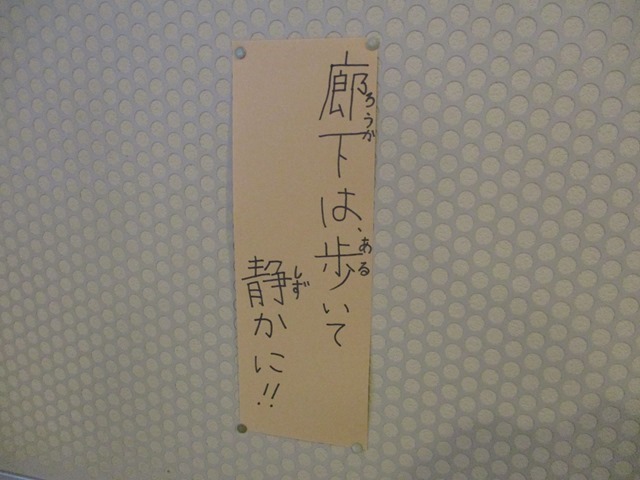 廊下は、歩いて
ろうか
ある
静かに!!
しず